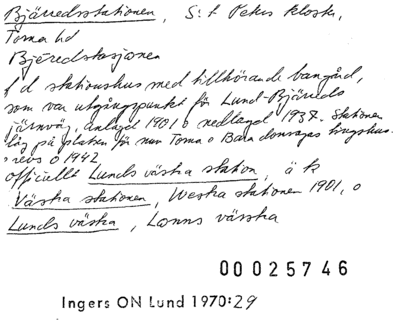 Bjärredsstationen, S:t Peters kloster,
Torna hd
Bjéredstasjonen
f d stationshus med tillhörande bangård,
som var utgångspunkt för Lund-Bjärreds
järnväg, anlagd 1901 o nedlagd 1937. Stationen
låg på platsen för nuv Torna o Bara domsagas tingshus.
revs o 1942
officiellt Lunds västra station, ä k
Västra stationen, Westra stationen 1901, o
Lunds västra, Lonns vässtra
00025746
Ingers ON Lund 1970:29